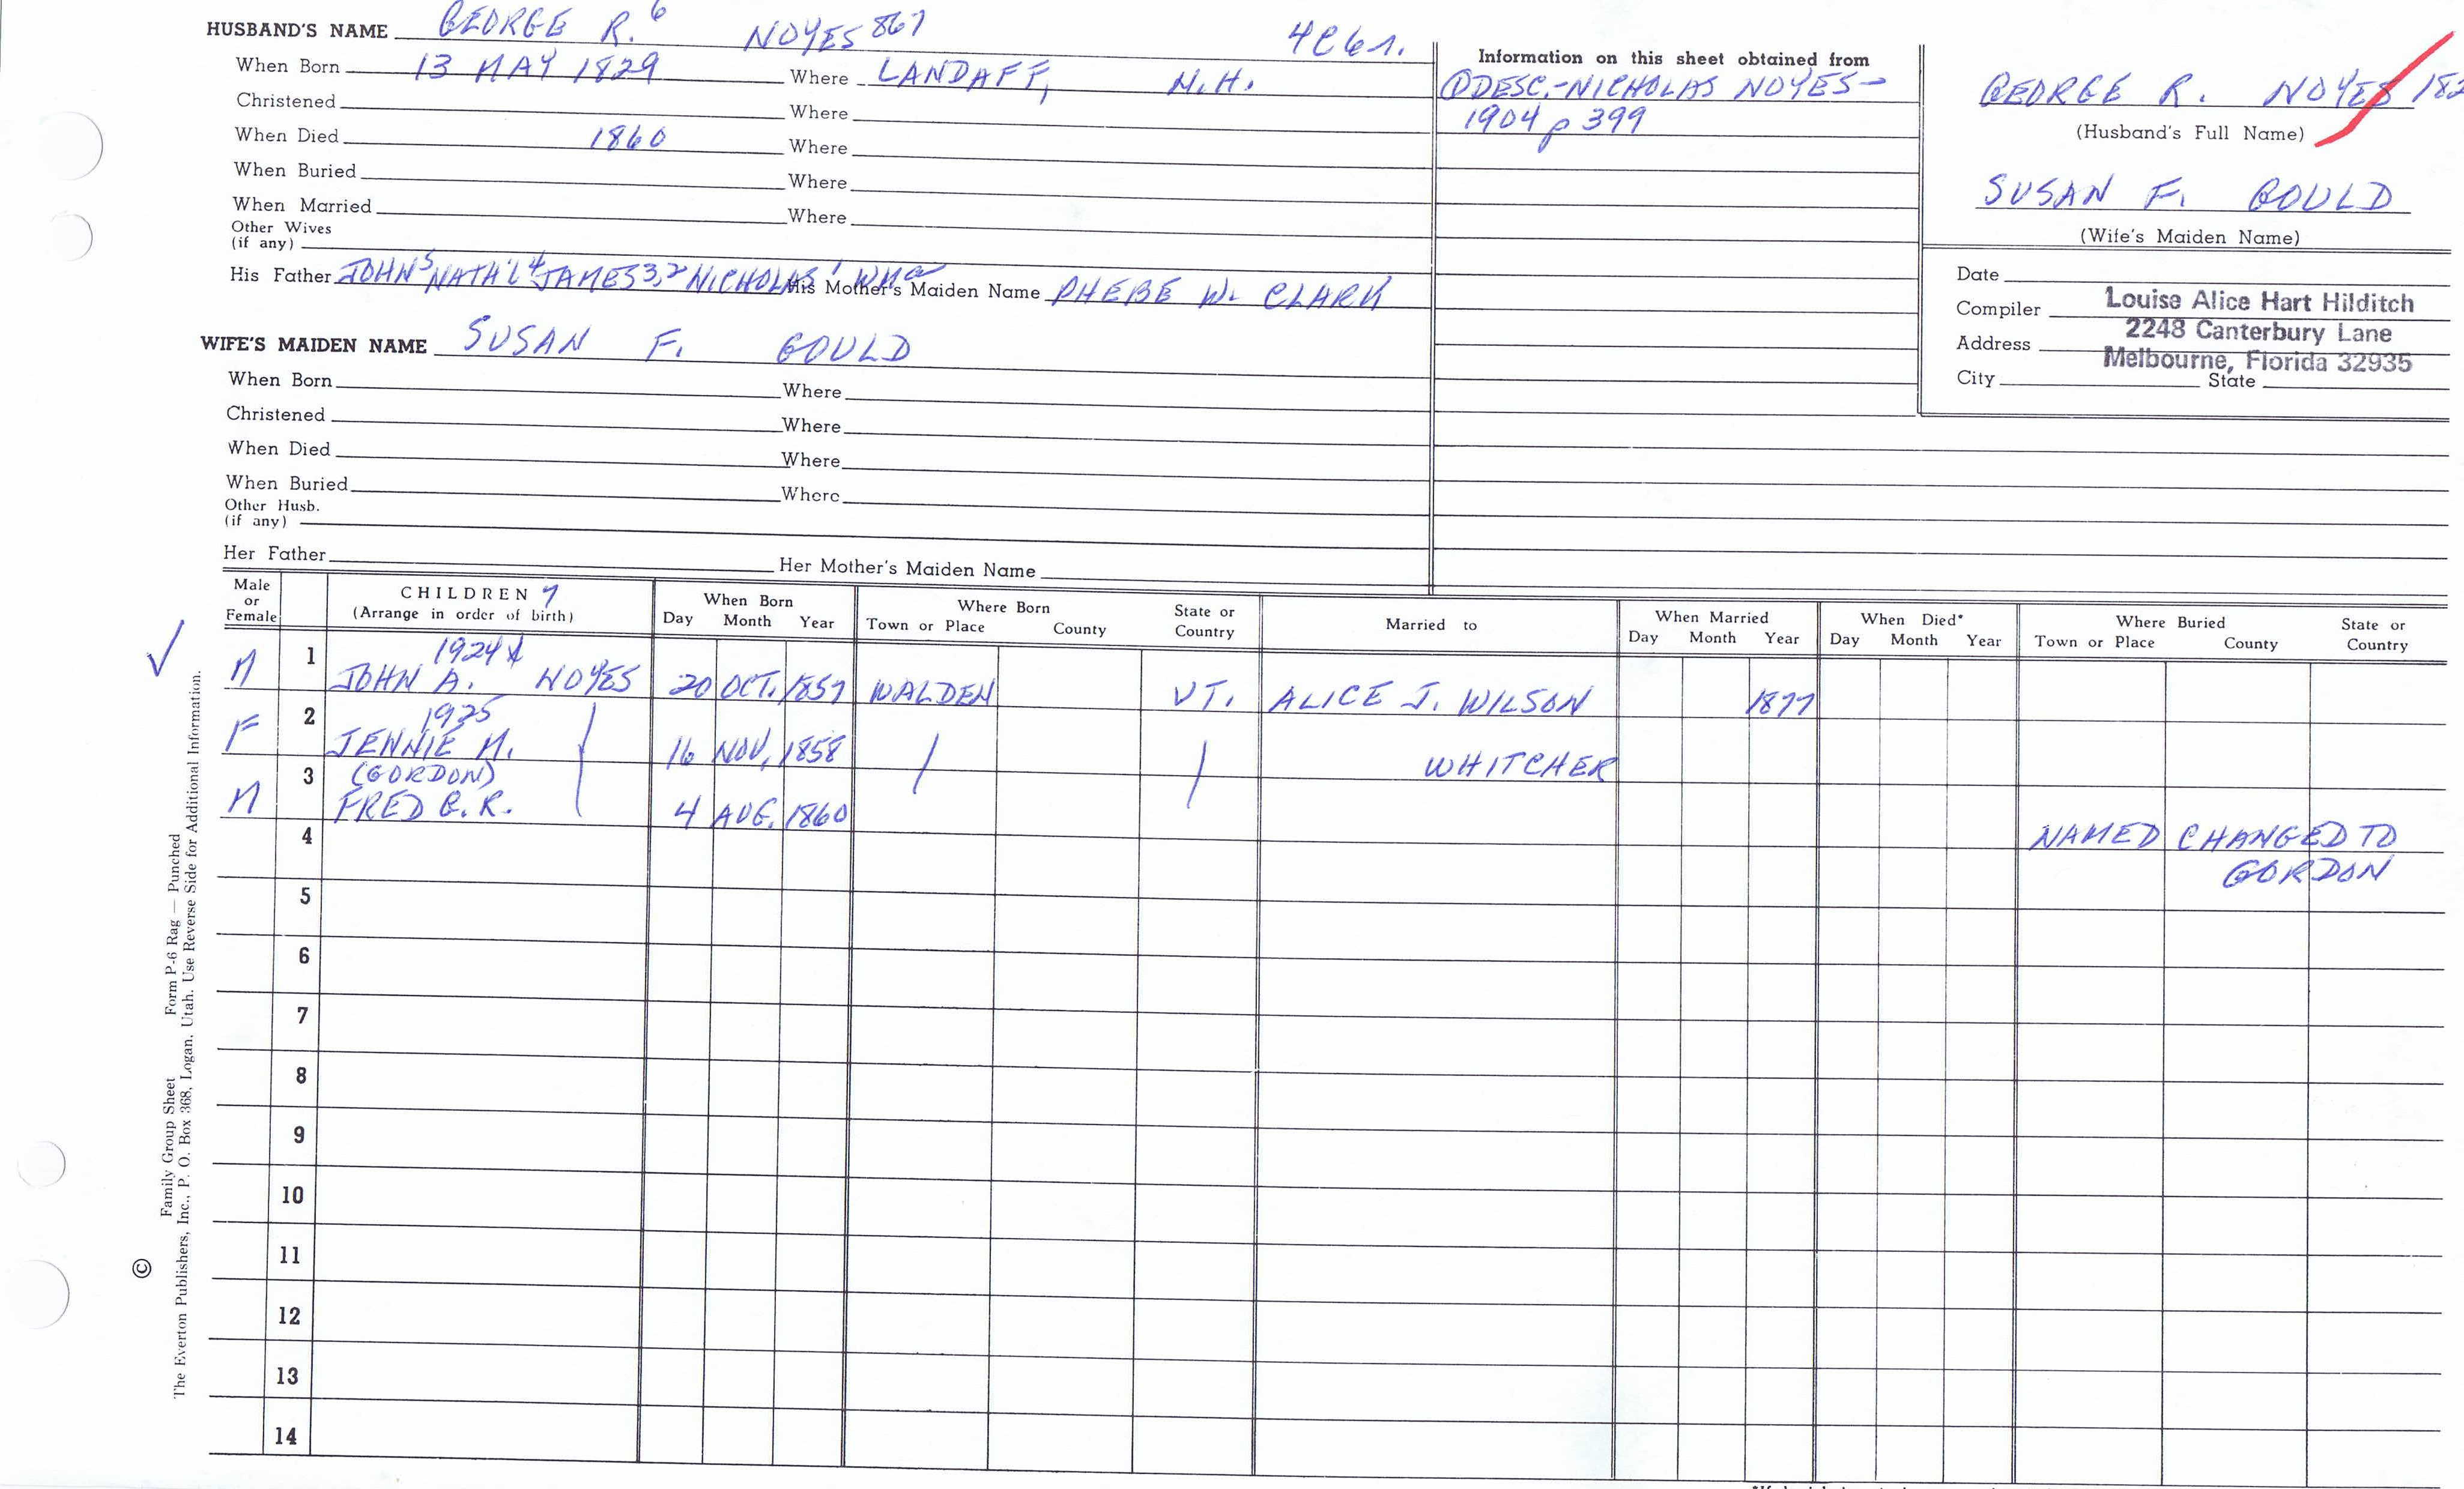 HUSBAND'S NAME GEORGE R.⁶ NOYES 867 4C6r.
When Born 13 MAY 1829 Where LANDAFF, N.H.
Christened Where
When Died 1860 Where
When Buried Where
When Married Where
Other Wives
(if any)
His Father JOHN⁵ NATH'L⁴ JAMES³,² NICHOLAS¹ WMᵃ His Mother's Maiden Name PHEBE W. CLARK
WIFE'S MAIDEN NAME SUSAN F. GOULD
When Born Where
Christened Where
When Died Where
When Buried Where
Other Husb.
(if any)
Her Father Her Mother's Maiden Name
Information on this sheet obtained from
①DESC.-NICHOLAS NOYES-
1904 p 399
GEORGE R. NOYES 182
(Husband's Full Name)
SUSAN F. GOULD
(Wife's Maiden Name)
Date
Compiler Louise Alice Hart Hilditch
Address 2248 Canterbury Lane
Melbourne, Florida 32935
City State
Male or Female CHILDREN 7 (Arrange in order of birth) When Born Day Month Year Where Born Town or Place County State or Country Married to When Married Day Month Year When Died* Day Month Year Where Buried Town or Place County State or Country
1924
M 1 JOHN A. NOYES 20 OCT. 1857 WALDEN VT. ALICE J. WILSON 1877
1925
F 2 JENNIE M. 16 NOV. 1858 WHITCHER
(GORDON)
M 3 FRED G.R. 4 AUG. 1860
4 NAMED CHANGED TO
GORDON
5
6
7
8
9
10
11
12
13
14
Family Group Sheet Form P-6 Rag — Punched
© The Everton Publishers, Inc., P. O. Box 368, Logan, Utah. Use Reverse Side for Additional Information.